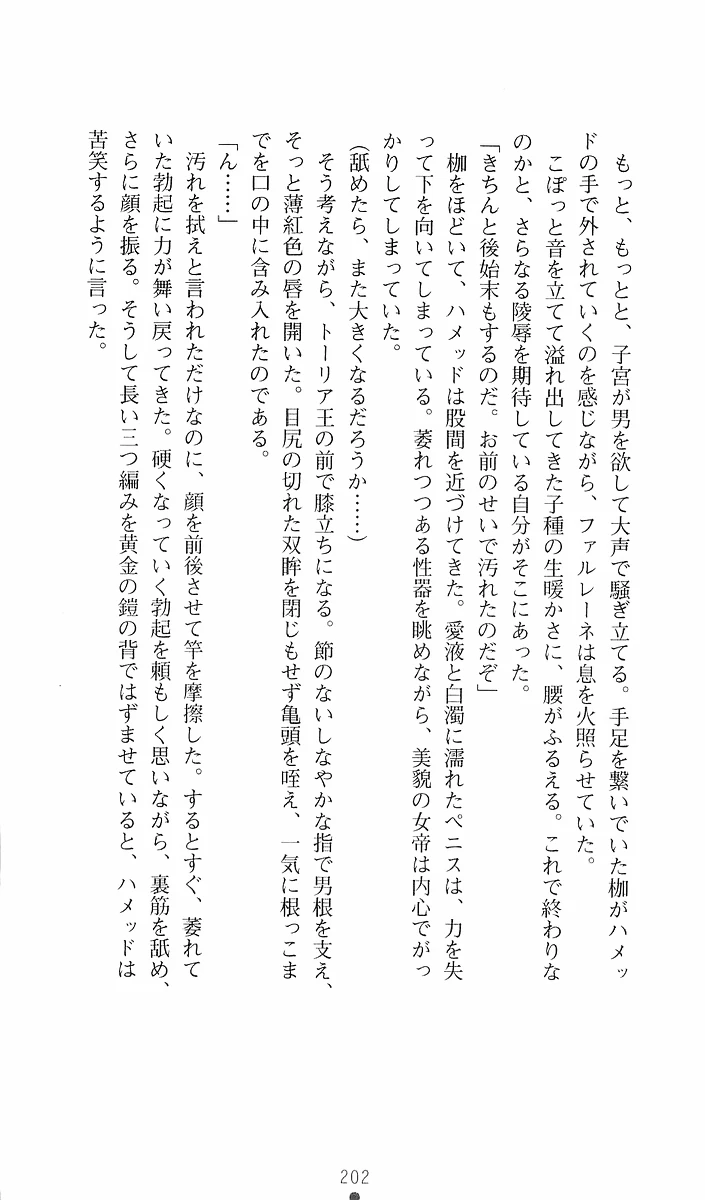 もっと、もっとと、子宮が男を欲して大声で騒ぎ立てる。手足を繋いでいた枷がハメッ
ドの手で外されていくのを感じながら、ファルレーネは息を火照らせていた。
こぽっと音を立てて溢れ出してきた子種の生暖かさに、腰がふるえる。これで終わりな
のかと、さらなる陵辱を期待している自分がそこにあった。
「きちんと後始末もするのだ。お前のせいで汚れたのだぞ」
枷をほどいて、ハメッドは股間を近づけてきた。愛液と白濁に濡れたペニスは、力を失
って下を向いてしまっている。萎れつつある性器を眺めながら、美貌の女帝は内心でがっ
かりしてしまっていた。
(舐めたら、また大きくなるだろうか……)
そう考えながら、トーリア王の前で膝立ちになる。節のないしなやかな指で男根を支え、
そっと薄紅色の唇を開いた。目尻の切れた双眸を閉じもせず亀頭を咥え、一気に根っこま
でを口の中に含み入れたのである。
「ん……」
汚れを拭えと言われただけなのに、顔を前後させて竿を摩擦した。するとすぐ、萎れて
いた勃起に力が舞い戻ってきた。硬くなっていく勃起を頼もしく思いながら、裏筋を舐め、
さらに顔を振る。そうして長い三つ編みを黄金の鎧の背ではずませていると、ハメッドは
苦笑するように言った。
202